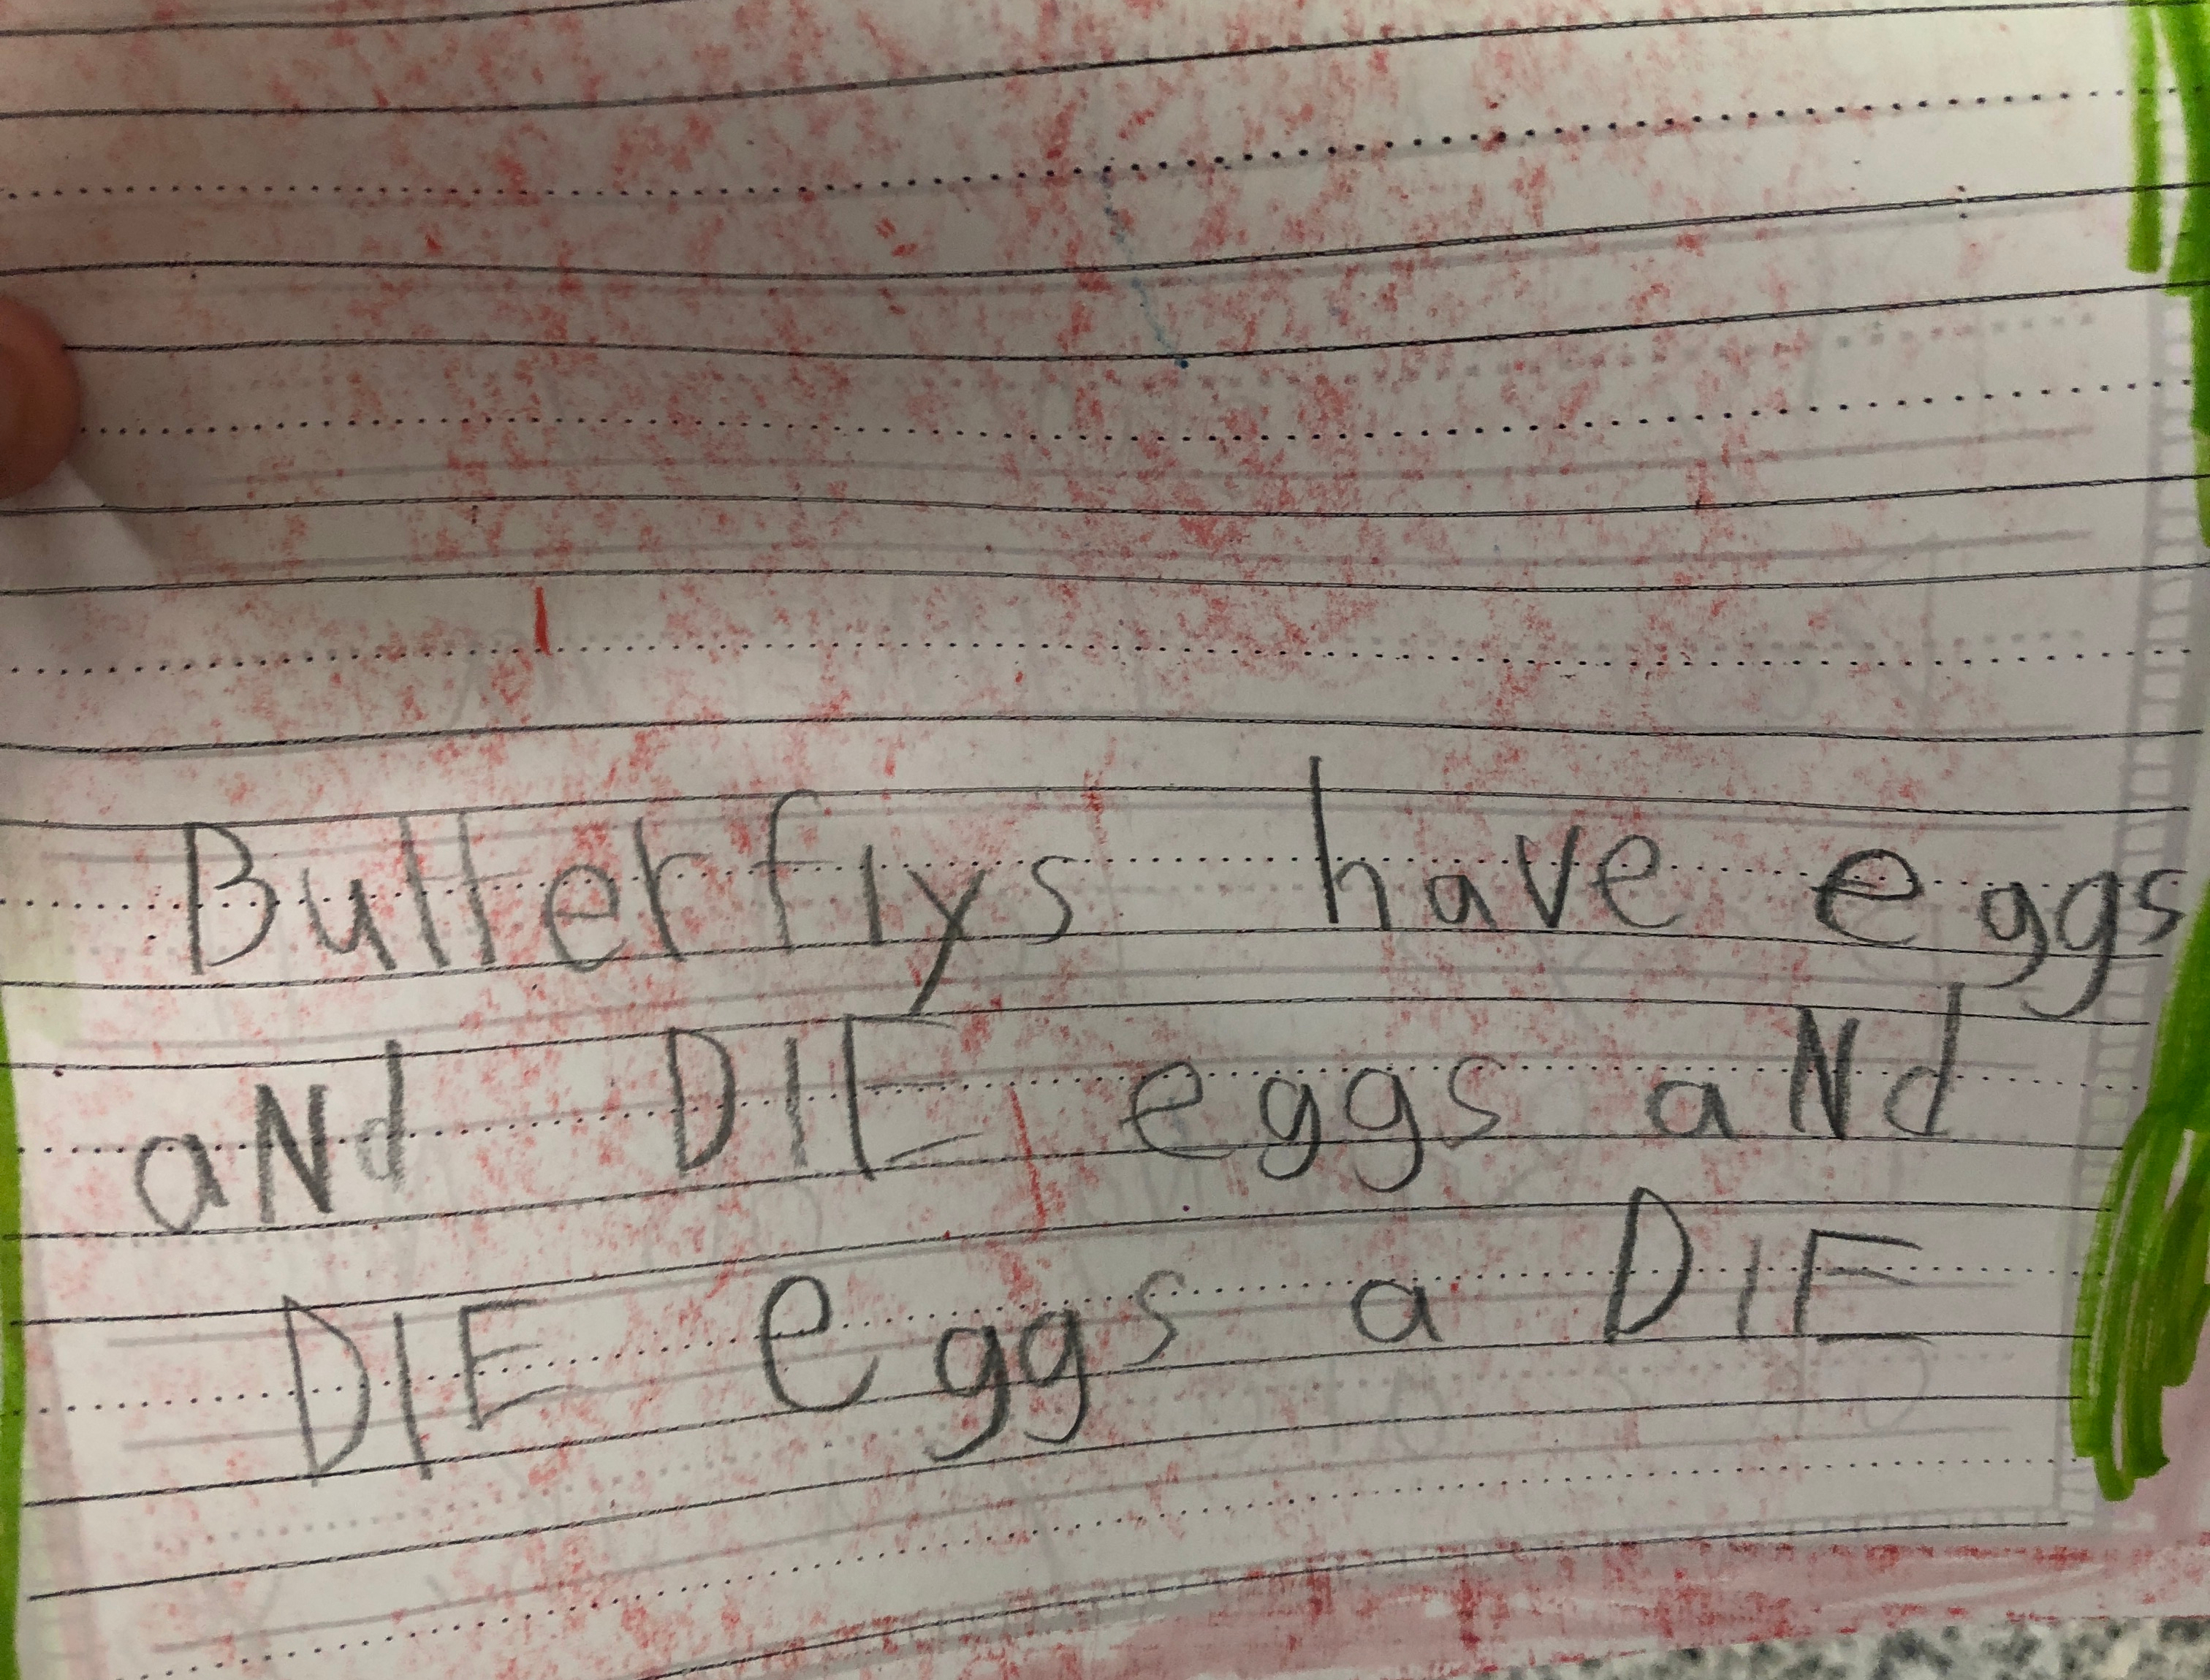 Butterflys have eggs
aNd DIE eggs aNd
DIE eggs a DIE